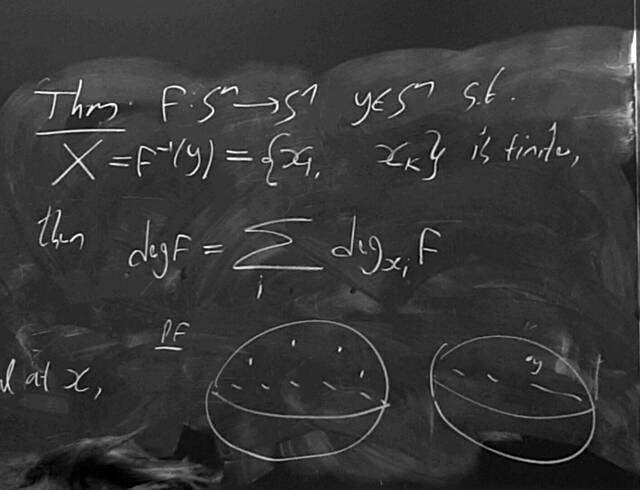 Thm. F: Sⁿ → Sⁿ y ∈ Sⁿ s.t.
X = F⁻¹(y) = {x₁, x_K} is finite,
then deg F = Σ_i deg_{x_i} F
PF
at x,
y